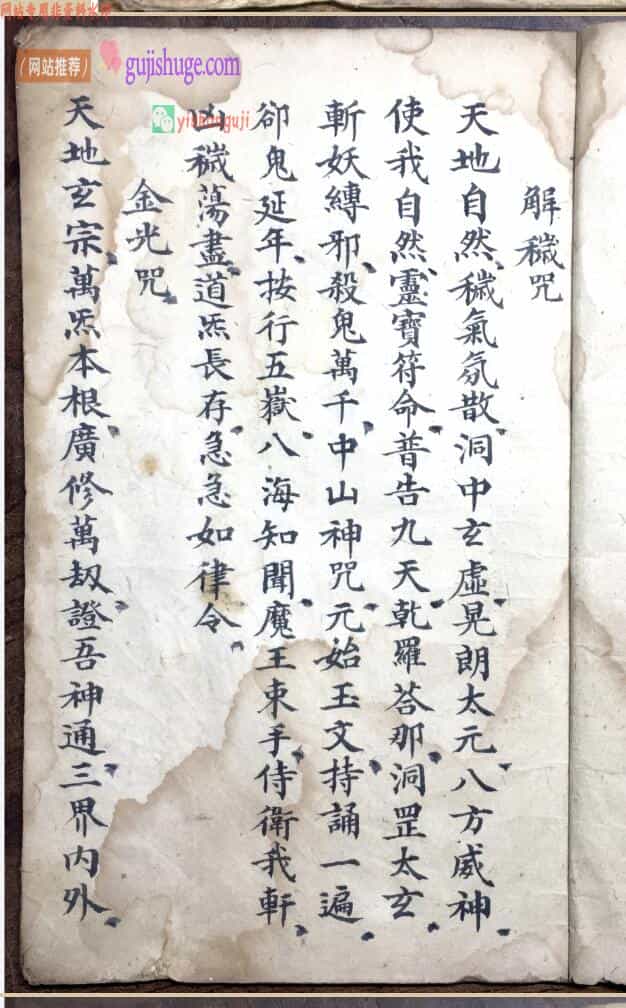 网站专用非资料水印
（网站推荐）
gujishuge.com
解穢咒
天地自然穢氣氛散洞中玄虛晃朗太元八方威神
使我自然靈寶符命普告九天乾羅荅那洞罡太玄
斬妖縛邪殺鬼萬千中山神咒元始玉文持誦一遍
卻鬼延年按行五嶽八海知聞魔王束手侍衛我軒
凶穢蕩盡道炁長存急急如律令
金光咒
天地玄宗萬炁本根廣修萬劫證吾神通三界内外